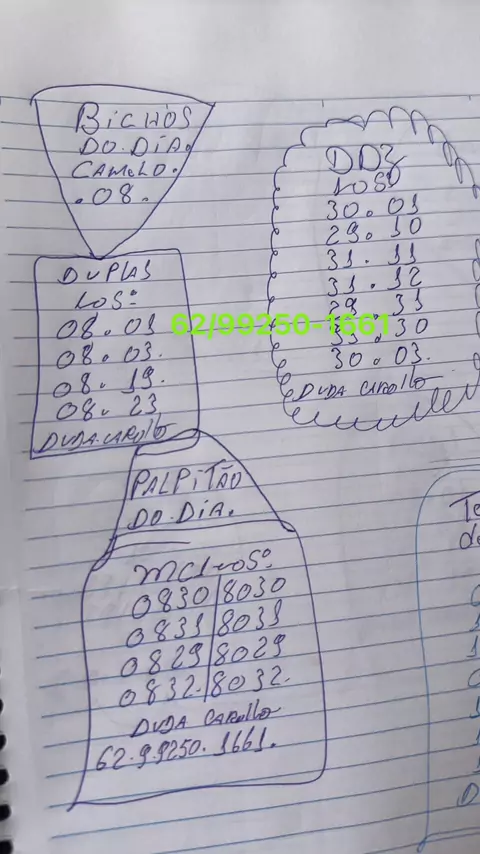 BICHOS
DO.DIA.
CAMELO.
.08.
DUPLAS
LOS:
08.01
08.03.
08.19.
08.23
DUDA.CAROLLO
DDZ
LOS:
30.01
29.10
31.11
31.12
29.31
31.30
30.03.
DUDA CAROLLO
62/99250-1661
PALPITÃO
DO.DIA.
MC LOS:
0830 8030
0831 8031
0829 8029
0832. 8032.
DUDA CAROLLO
62.9.9250.1661.
Te
de